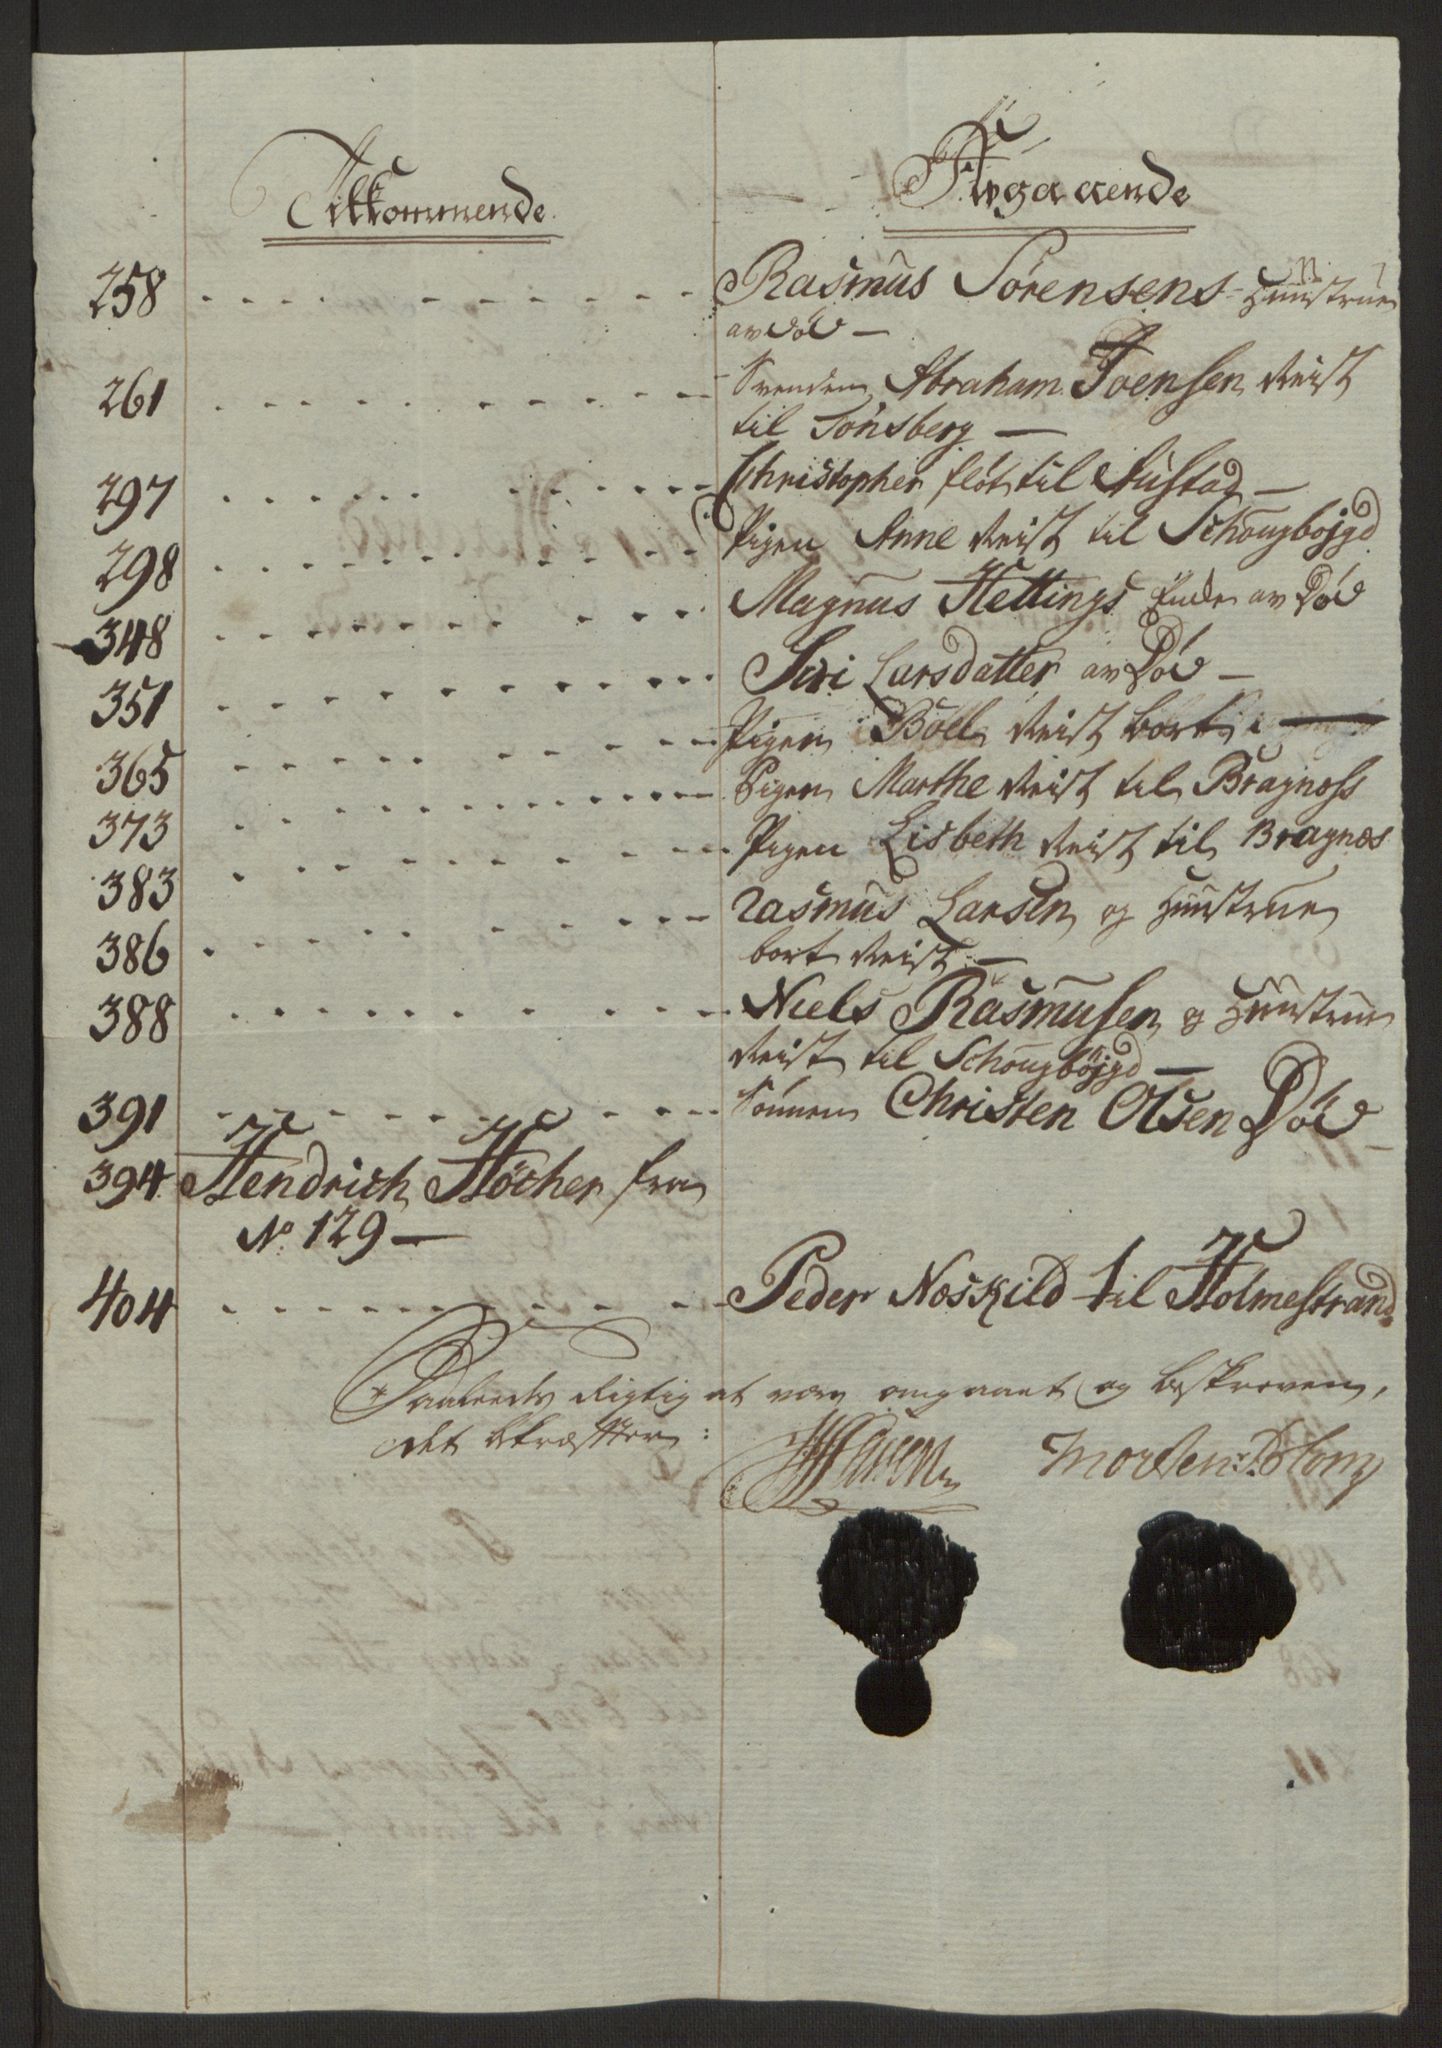 Tilkommende
Avgaaende
258 Rasmus Sörensens Huustrue
av Död —
261 Svenden Abraham Joensen Reist
til Tönsberg —
297 Christopher flöt til Austad —
298 Pigen Anne Reist til Schougböjgd
348 Magnus Hellings Enke av Död
351 Siri Larsdatter av Död —
365 Pigen Boel Reist bort
373 Pigen Marthe Reist til Bragness
383 Pigen Lisbeth Reist til Bragnæs
386 Rasmus Larsen og Huustrue
bort Reist —
388 Niels Rasmusen og Huustrue
Reist til Schougböjgd —
391 Sönnen Christen Olsen Död —
394 Hendrich Höcher fra
No 129 —
404 Peder Noskild til Holmestrand
Saaleeds Rigtig at være omgaaet og beskreven,
det bekræfter:
Morten Blom